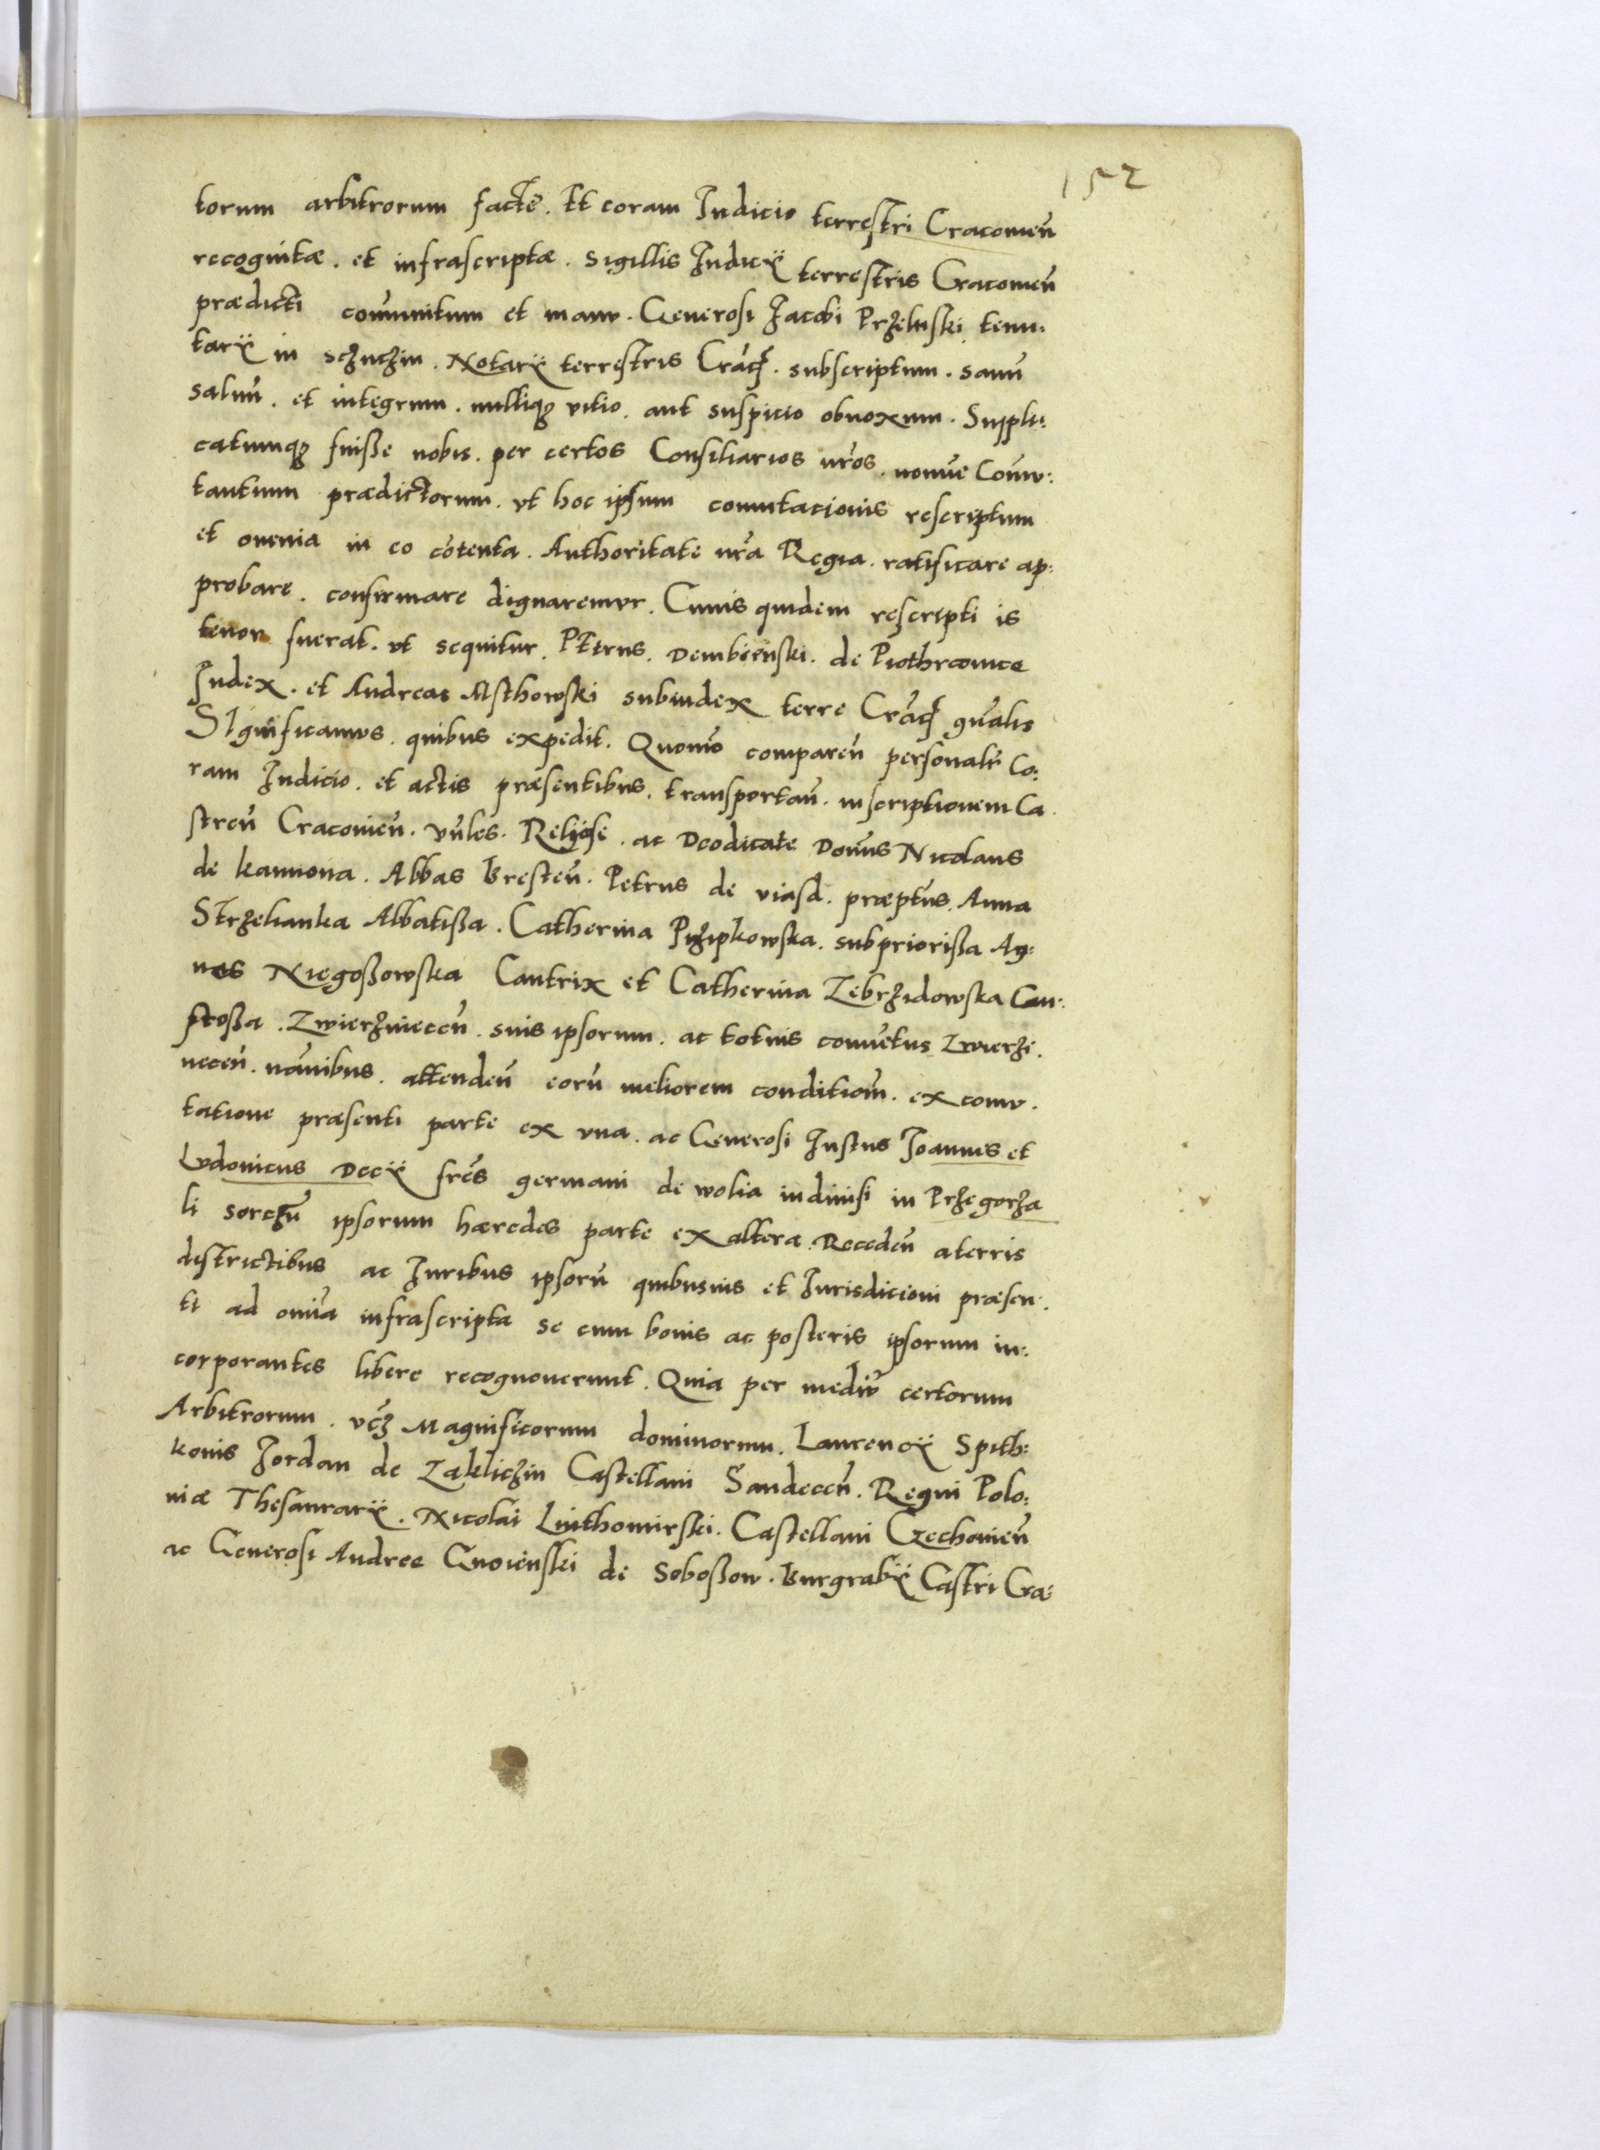 152
torum arbitrorum facte. Et coram Iudicio terrestri Cracouień
recognitæ. et infrascriptæ. sigillis Iudicÿ terrestris Cracouień
prædicti cōmunitum et manu. Generosi Jacobi Przeluski tenu:
tarÿ in Sczuczin. Notarÿ terrestris subscriptum. sanū
saluū. et integrum. nulliqȝ vitio. aut suspicio obnoxium. Suppli:
catumqȝ fuisse nobis. per certos Consiliarios nr̄os. nomīe Cōmu:
tantium prædictorum. vt hoc ipsum comutacionis rescriptum
et omnia in eo cōtenta. Authoritate nr̄a Regia. ratificare ap:
probare. confirmare dignaremur. Cuius quidem rescripti is
tenor fuerat. vt sequitur. PEtrus. Dembienski. de
Iudex. et Andreas Msthowski subiudex terre gn̄alis
SIgnificamus. quibus expedit. Quomō comparen̄ personalr̄ Co:
ram Iudicio. et actis præsentibus. transportan̄. inscriptionem Ca.
stren̄ Cracouien̄. Vn̄les. ac Deodicate Domn̄s Nicolaus
de kamiona. Abbas Bresten̄. Petrus de præptus. Anna
Strzelianka Abbatissa. Catherina subpriorissa Ag:
nes Niegossowska Cantrix et Catherina Zebrzidowska Cu:
stossa. Zwierzniecen̄. suis ipsorum. ac totius conuētus Zwierzi.
necen̄. noīnibus. attenden̄ eorū meliorem conditiom̄. ex comu.
tatione præsenti parte ex vna. ac Generosi Iustus Ioannes et
Ludouicus Decÿ frēs germani de wolia indiuisi in Przegorza
li sorczū ipsorum hæredes parte ex altera. Receden̄ a terris
districtibus ac Iuribus ipsorū quibusuis et Iurisdicioni præsen.
ti ad omīa infrascripta se cum bonis ac posteris ipsorum in:
corporantes libere recognouerunt. Quia per mediū certorum
Arbitrorum. vcȝ Magnificorum dominorum. Laurencÿ Spith:
konis Jordan de Zakliczin Castellani Sandecen̄. Regni Polo:
niæ Thesaurarÿ. Nicolai Luthomirski. Castellani Czechouien̄
ac Generosi Andree Gnoienski de Sobossow. Burgrabÿ Castri Cra: